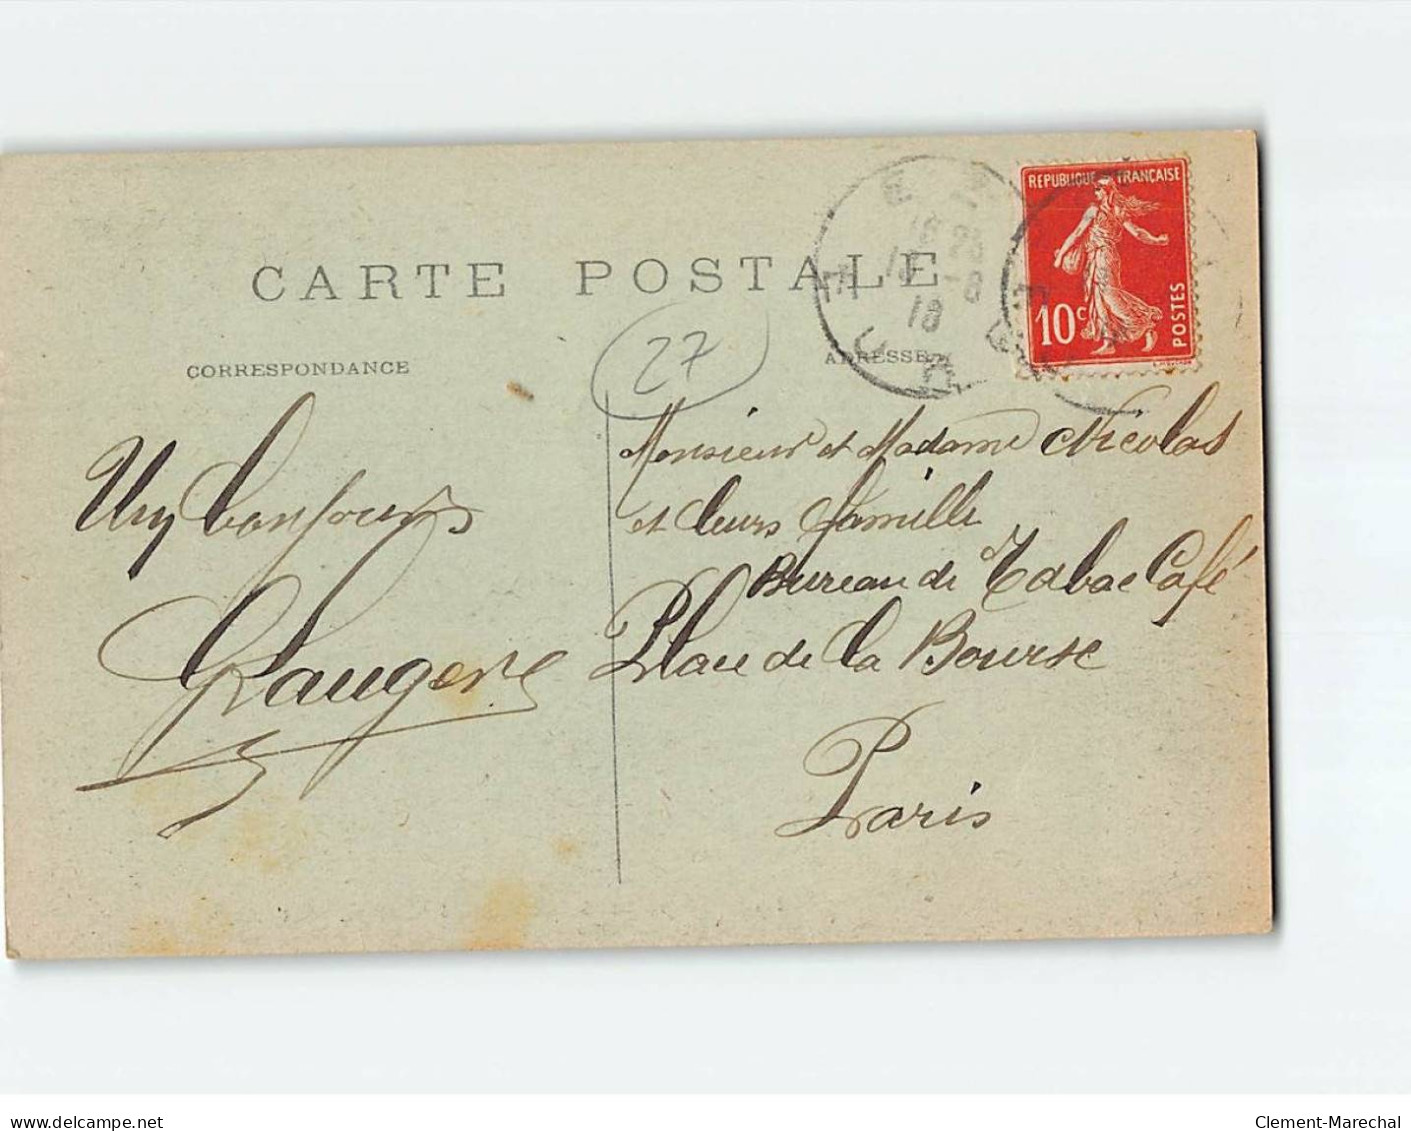 CARTE POSTALE
CORRESPONDANCE
ADRESSE
27
REPUBLIQUE FRANÇAISE
10c
POSTES
16 25
18 -8
18
Un bonjours
Laugere
Monsieur et Madame Nicolas
et leurs famille
Bureau de Tabac Café
Place de la Bourse
Paris
www.delcampe.net
Clement-Marechal